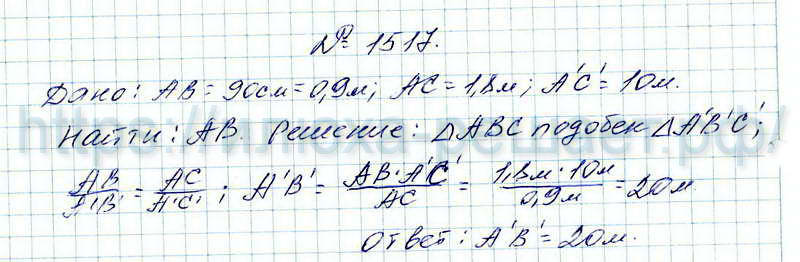 № 1517.
Дано: AB = 90см = 0,9м; AC = 1,8м; A'C' = 10м.
Найти: AB. Решение: △ABC подобен △A'B'C';
AB/A'B' = AC/A'C'; A'B' = AB·A'C'/AC = 1,8м·10м/0,9м = 20м
Ответ: A'B' = 20м.